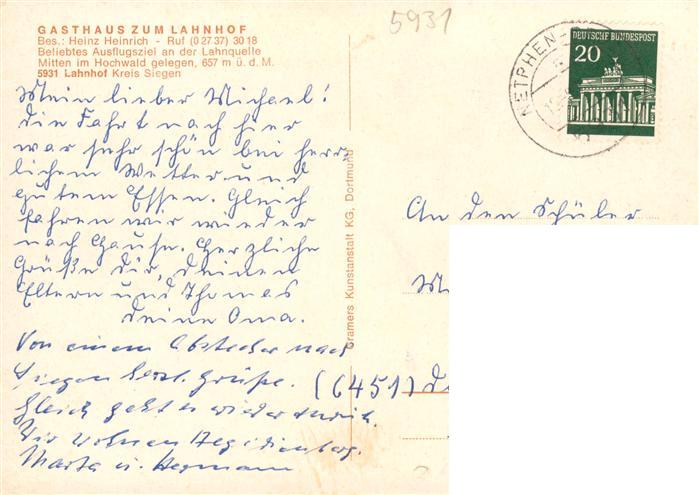 GASTHAUS ZUM LAHNHOF
Bes.: Heinz Heinrich - Ruf (0 27 37) 30 18
Beliebtes Ausflugsziel an der Lahnquelle
Mitten im Hochwald gelegen, 657 m ü. d. M.
5931 Lahnhof Kreis Siegen
Mein lieber Michael!
die Fahrt nach hier
war sehr schön bei herr
lichem Wetter und
gutem Essen. Gleich
fahren wir wieder
nach Hause. Herzliche
Grüße dir, deinen
Eltern und Thomas
deine Oma.
Von einem Abstecher nach
Siegen herzl. Grüße.
Gleich geht es wieder zurück.
Wir wohnen Aegidienberg.
Marta u. Hermann
Cramers Kunstanstalt KG, Dortmund
5931
NETPHEN
DEUTSCHE BUNDESPOST
20
An den Schüler
(6451)